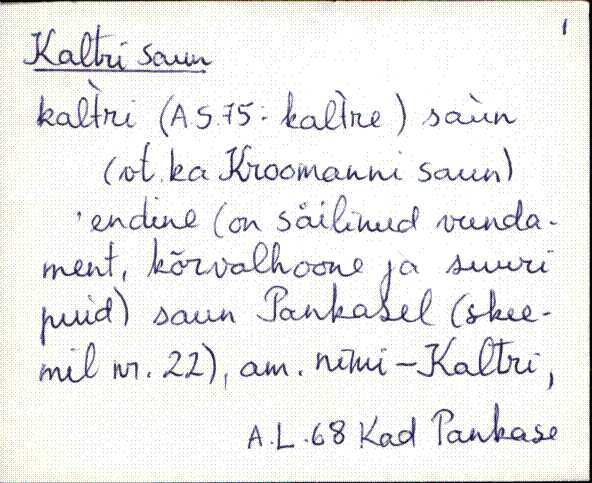 1
Kaltri saun
kalt̀ri (A.S.75: kalt̀re) saùn
(vt. ka Kroomanni saun)
'endine (on säilinud vunda-
ment, kõrvalhoone ja suuri
puid) saun Pankasel (skee-
mil nr. 22), am. nimi – Kaltri,
A.L.68 Kad Pankase